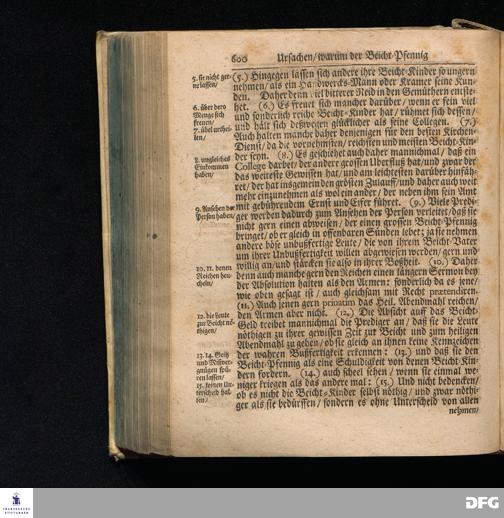 600 Ursachen/ warum der Beicht-Pfennig
5. sie nicht ger-
ne lassen/
6. über dero
Menge sich
freuen/
7. übel urthei-
len/
8. ungleiches
Einkommen
haben/
9. Ansehen der
Person haben/
10. 11. denen
Reichen heu-
cheln/
12. die Leute
zur Beicht nö-
thigen/
13. 14. Geitz
und Mißver-
gnügen spü-
ren lassen/
15. keinen Un-
terscheid hal-
ten/
(5.) Hingegen lassen sich andere ihre Beicht-Kinder so ungern
nehmen/ als ein Handwercks-Mann oder Kramer seine Kun-
den. Daher denn viel bitterer Neid in den Gemüthern entste-
het. (6.) Es freuet sich mancher darüber/ wenn er fein viel
und sonderlich reiche Beicht-Kinder hat/ rühmet sich dessen/
und hält sich deßwegen glücklicher als seine Collegen. (7.)
Auch halten manche daher denjenigen für den besten Kirchen-
Dienst/ da die vornehmsten/ reichsten und meisten Beicht-Kin-
der seyn. (8.) Es geschiehet auch daher mannichmal/ daß ein
College darbet/ der andere grossen Uberfluß hat/ und zwar der
das weiteste Gewissen hat/ und am leichtesten darüber hinfäh-
ret/ der hat insgemein den grösten Zulauff/ und daher auch weit
mehr einzunehmen als wol ein ander/ der neben ihm sein Amt
mit gebührendem Ernst und Eifer führet. (9.) Viele Predi-
ger werden dadurch zum Ansehen der Person verleitet/ daß sie
nicht gern einen abweisen/ der einen grossen Beicht-Pfennig
bringet/ ob er gleich in offenbaren Sünden lebet; ja sie nehmen
andere böse unbußfertige Leute/ die von ihrem Beicht-Vater
um ihrer Unbußfertigkeit willen abgewiesen werden/ gern und
willig an/ und stärcken sie also in ihrer Boßheit. (10.) Daher
denn auch manche gern den Reichen einen längern Sermon bey
der Absolution halten als den Armen: sonderlich da es jene/
wie oben gesagt ist/ auch gleichsam mit Recht prætendiren.
(11.) Auch jenen gern privatim das Heil. Abendmahl reichen/
den Armen aber nicht. (12.) Die Absicht auff das Beicht-
Geld treibet mannichmal die Prediger an/ daß sie die Leute
nöthigen zu ihrer gewissen Zeit zur Beicht und zum heiligen
Abendmahl zu gehen/ ob sie gleich an ihnen keine Kennzeichen
der wahren Bußfertigkeit erkennen: (13.) und daß sie den
Beicht-Pfennig als eine Schuldigkeit von denen Beicht-Kin-
dern fordern. (14.) auch scheel sehen/ wenn sie einmal we-
niger kriegen als das andere mal: (15.) Und nicht bedencken/
ob es nicht die Beicht-Kinder selbst nöthig/ und zwar nöthi-
ger als sie bedürffen/ sondern es ohne Unterscheid von allen
nehmen/
FRANCKESCHE
STIFTUNGEN
DFG